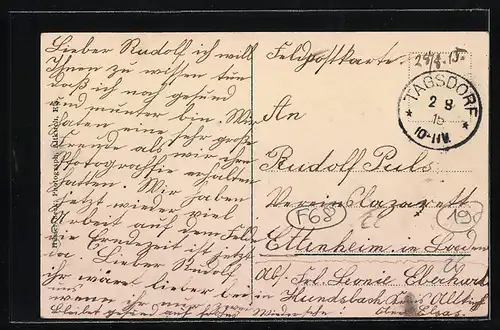 Lieber Rudolf ich will
Ihnen zu wissen tun
daß ich noch gesund
und munter bin. Wir
haten eine sehr große
Freude als wir ihre
Photographie erhalten
hatten. Wir haben
jetzt wieder viel
Arbeit auf dem Felde
die Erntezeit ist jetzt
da. Lieber Rudolf
ihr wäret lieber bei
uns
wenn ihr nur
Bleibet gesund auf
Feldpostkarte
29/7.15.
TAGSDORF
2 8
15
10-11V.
An
Rudolf Puls
Vereinslazarett
F68
19
Ettenheim in Baden
Abs: Frl. Leonie Eberhard
in Hundsbach Kreis Altkirch
Ober Elsas.
Photograph, Altkirch